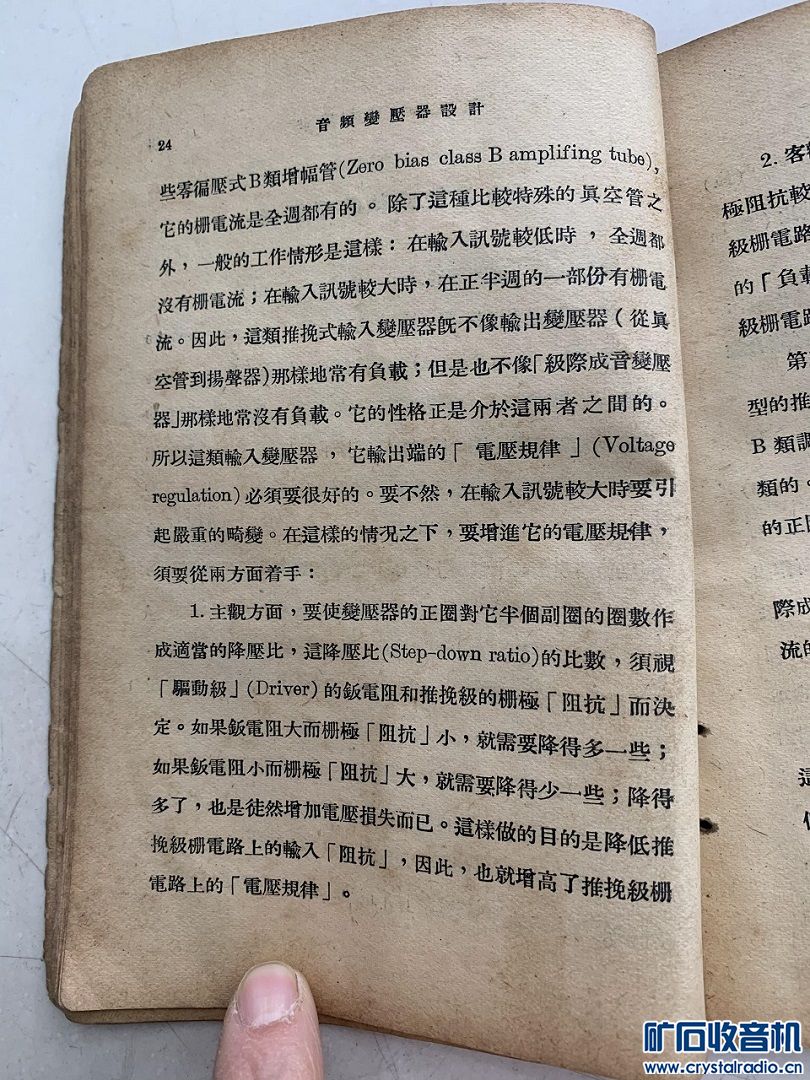 24
音頻變壓器設計
些零偏壓式B類增幅管(Zero bias class B amplifing tube)，
它的柵電流是全週都有的。除了這種比較特殊的眞空管之
外，一般的工作情形是這樣：在輸入訊號較低時，全週都
沒有柵電流；在輸入訊號較大時，在正半週的一部份有柵電
流。因此，這類推挽式輸入變壓器旣不像輸出變壓器（從眞
空管到揚聲器)那樣地常有負載；但是也不像「級際成音變壓
器」那樣地常沒有負載。它的性格正是介於這兩者之間的。
所以這類輸入變壓器，它輸出端的「電壓規律」(Voltage
regulation)必須要很好的。要不然，在輸入訊號較大時要引
起嚴重的畸變。在這樣的情況之下，要增進它的電壓規律，
須要從兩方面着手：
1. 主觀方面，要使變壓器的正圈對它半個副圈的圈數作
成適當的降壓比，這降壓比(Step-down ratio)的比數，須視
「驅動級」(Driver)的鈑電阻和推挽級的柵極「阻抗」而決
定。如果鈑電阻大而柵極「阻抗」小，就需要降得多一些；
如果鈑電阻小而柵極「阻抗」大，就需要降得少一些；降得
多了，也是徒然增加電壓損失而已。這樣做的目的是降低推
挽級柵電路上的輸入「阻抗」，因此，也就增高了推挽級柵
電路上的「電壓規律」。
2. 客
極阻抗較
級柵電路
的「負載
級柵電路
第
型的推
B 類調
類的。
的正
際成
流的
這
矿石收音机
www.crystalradio.cn